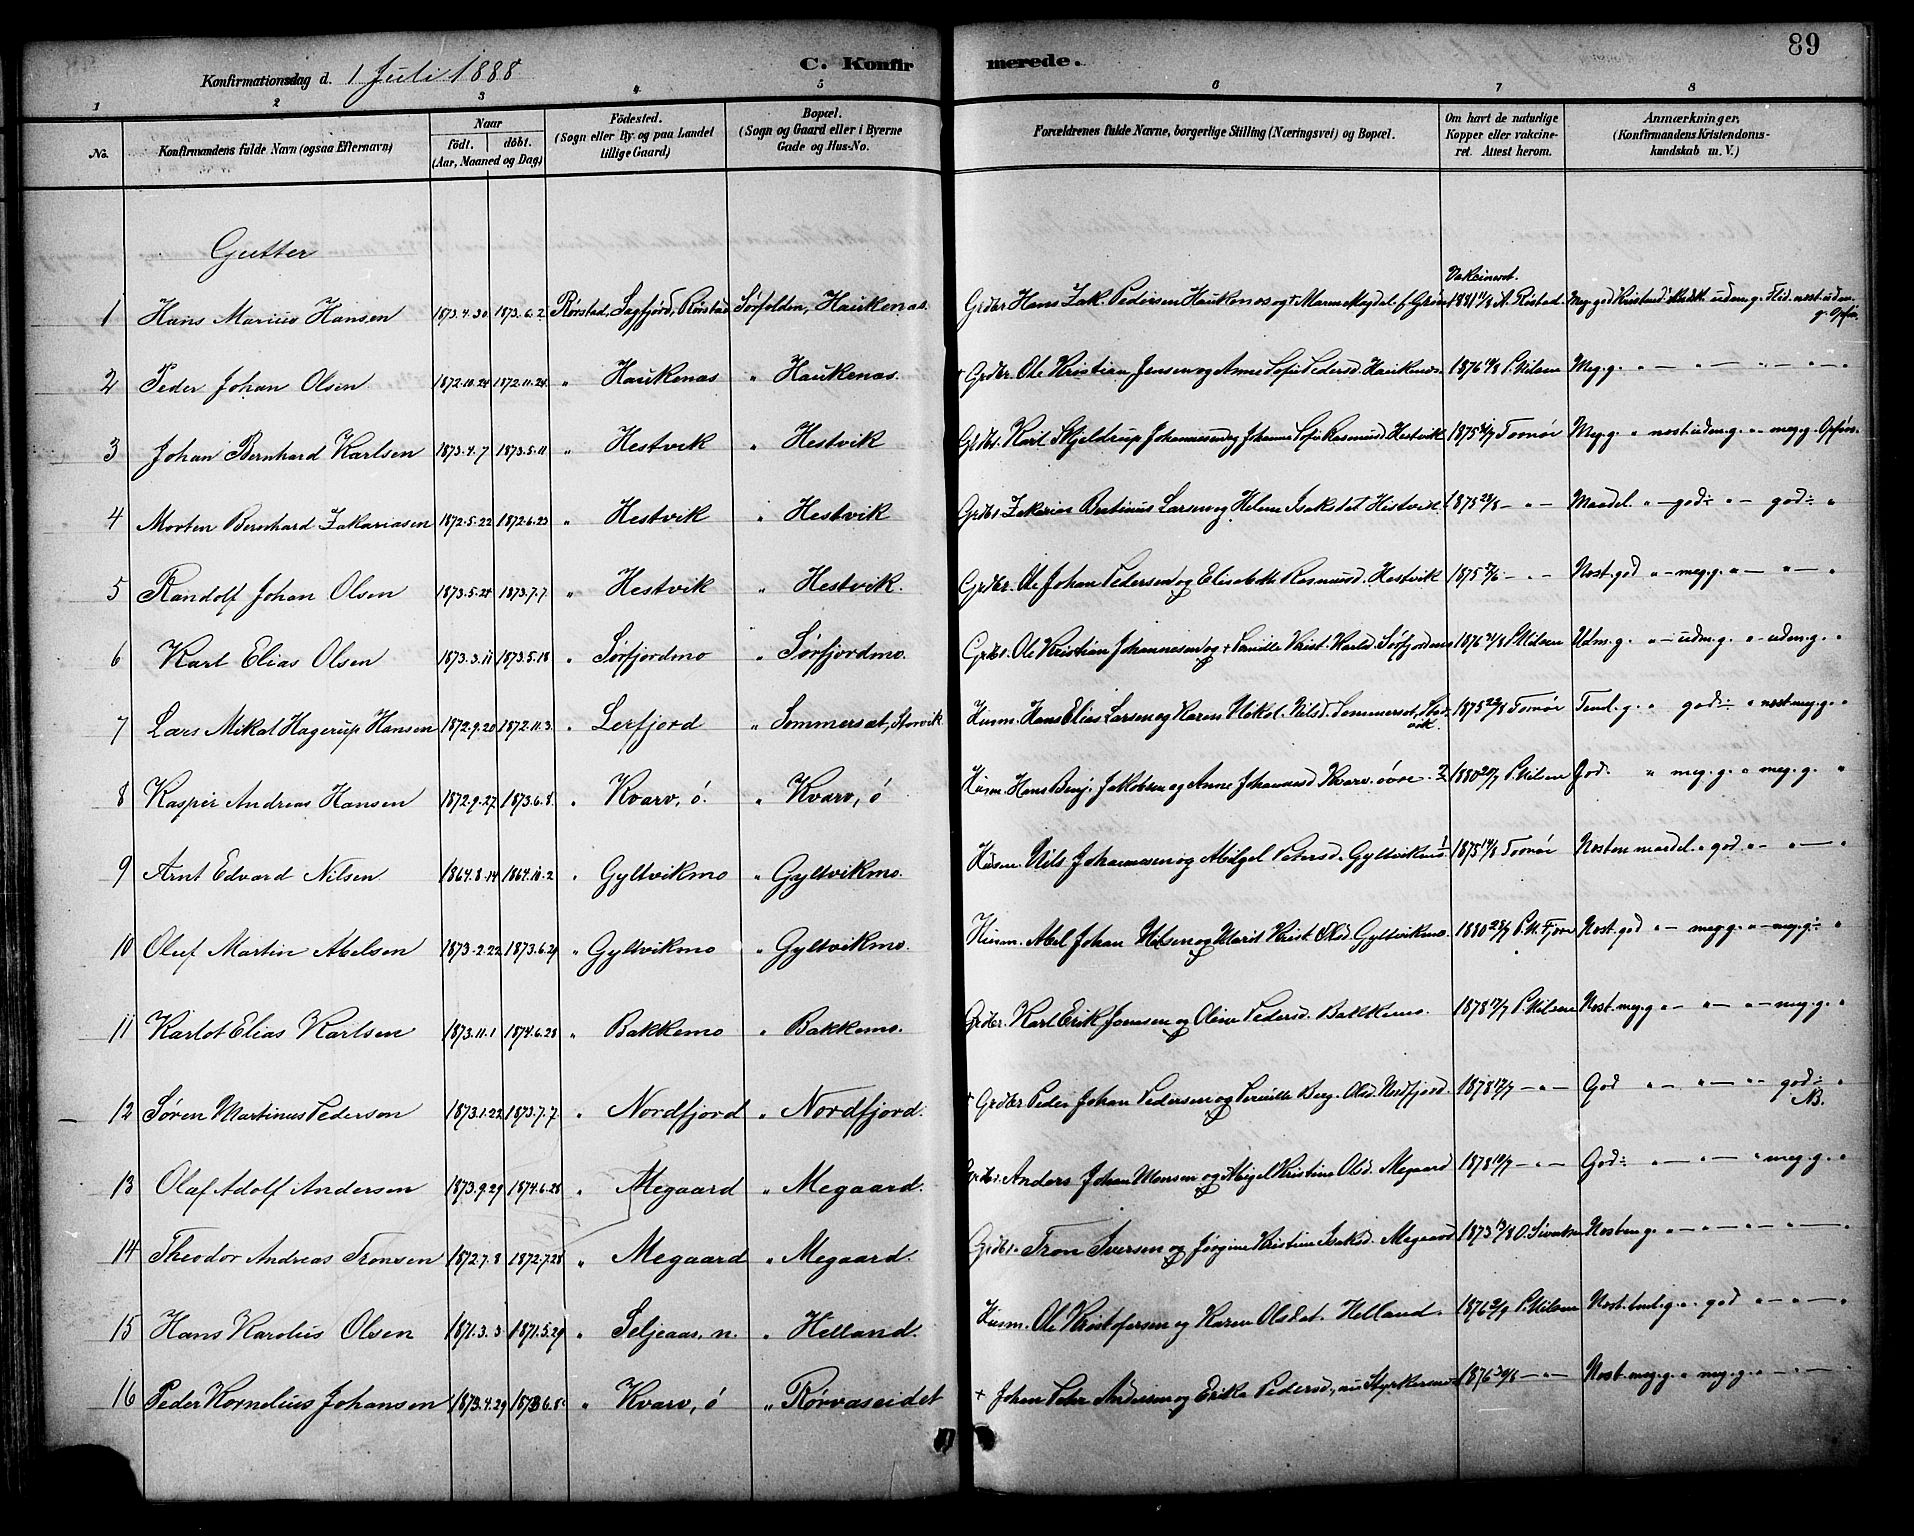 89
Konfirmationsdag d. 1 Juli 1888
C. Konfirmerede.
1 2 3 4 5 6 7 8
No.
Konfirmandens fulde Navn (ogsaa Efternavn)
Naar
födt. döbt.
(Aar, Maaned og Dag)
Födested.
(Sogn eller By og paa Landet
tillige Gaard)
Bopæl.
(Sogn og Gaard eller i Byerne
Gade og Hus-No.
Forældrenes fulde Navne, borgerlige Stilling (Næringsvei) og Bopæl.
Om havt de naturlige
Kopper eller vakcine-
ret. Attest herom.
Anmærkninger.
(Konfirmandens Kristendoms-
kundskab m. V.)
Gutter
Vakcineret.
1 Hans Marius Hansen 1873.4.30 1873.6.2 Rørstad, Sagfjord, Rørstad Sørfolden, Haukenas. Grdbr Hans Zak. Pedersen Haukenæs og + Maren Magdal. f. 1881 11/8 A. Ristad Meg. god Kristend. udm. g. Flid, nost. udm.
g. Opfør.
2 Peder Johan Olsen 1872.10.24 1872.11.24 " Haukenas " Haukenas. + Grdbr. Ole Kristian Jensen og Anne Sofie Pedersd. Haukenæs. 1876 P. Nilsen Meg. g. " — " — " — " — "
3 Johan Bernhard Karlsen 1873.4.7 1873.5.11 " Hestvik " Hestvik Grdbr. Karl Skjeldrup Johannesen og Johanna Sofie Rasmusd Hestvik 1875 Tornør Meg. g. " nost. udm. g. " meg. g. Opfør.
4 Morten Bernhard Zakariasen 1872.5.22 1872.6.23 " Hestvik " Hestvik Grdbr. Zakarias Bertinus Larsen og Helene Isaksdat Hestvik. 1875 23/8 — " — Maadel. " — god÷ " — god÷ "
5 Randolf Johan Olsen 1873.5.24 1873.7.7. " Hestvik " Hestvik. Grdbr. Ole Johan Pedersen og Elisabeth Rasmusd. Hestvik 1875 — " — Nost. god " — meg. g. " — " — "
6 Karl Elias Olsen 1873.3.11 1873.5.18 " Sørfjordmo " Sørfjordmo. Grdbr. Ole Kristian Johannesen og + Pernille Krist. Karlsd. Sørfjordmo 1876 P. Nilsen Udm. g. " — udm. g. " — udm. g. "
7 Lars Mikal Hagerup Hansen 1872.9.20 1872.11.3. " Lerfjord " Sommerset, Storvik Husm. Hans Elias Larsen og Karen Nikol. Nilsd. Sommerset, Stor-
vik. 1875 22/8 Tornør Tml. g. " god÷ " nost. meg. g. "
8 Kasper Andreas Hansen 1872.9.27 1873.6.8. " Kvarv, ö. " Kvarv, ö Husm. Hans Benj. Jakobsen og Anne Johannesd Kvarv, övre. 1880 P. Nilsen God. " meg. g. " meg. g. "
9 Arnt Edvard Nilsen 1864.8.14 1864.10.2 " Gyltvikmo " Gyltvikmo. Husm. Nils Johannesen og Abigel Petersd. Gyltvikmo. 1875 14/8 Tornør Nosten maadel. " god. " — " — "
10 Oluf Martin Abelsen 1873.2.22 1873.6.29 " Gyltvikmo " Gyltvikmo. Husm. Abel Johan Nilsen og Marit Krist. Olsd Gyltvikmo. 1880 Nost. god " — meg. g. " — meg. g÷ "
11 Karlot Elias Karlsen 1873.11.1 1874.6.28 " Bakkemo " Bakkemo. Grdbr. Karl Erik Jonsen og Oline Pedersd. Bakkemo. 1878 17/7 P. Nilsen Nost. meg. g " — " — " — meg. g. "
12 Søren Martinus Pederson 1873.1.22 1873.7.7. " Nordfjord " Nordfjord. + Grdbr Peder Johan Pedersen og Pernille Berg. Olsd. Nordfjord. 1878 17/7 — " — God " — " — " — god÷ "
NB.
13 Olaf Adolf Andersen 1873.9.29 1874.6.28 " Megaard " Megaard. Grdbr. Anders Johan Monsen og Abigel Kristina Olsd. Megaard 1878 — " — God÷ " — " — " meg. g. "
14 Theodor Andreas Tronsen 1872.7.8 1872.7.28 " Megaard " Megaard. Grdbr. Tron Iversen og Jørgine Kristine Isaksd. Megaard 1873 13/8 O. Sivertsen Nosten g. " — " — " — " — "
15 Hans Karolius Olsen 1871.3.3 1871.5.29 " Seljeaas, n. " Helland. Husm. Ole Kristofersen og Karen Olsdat. Helland. 1876 P. Nilsen Nost. tml. g. " god " — " — "
16 Peder Kornelius Johansen 1873.4.29 1873.6.8 " Kvarv, ö " Rørvaseidet + Johan Peter Andersen og Erika Pedersd., nu 1876 — " — Nost. meg. g " meg. g. " — " — "